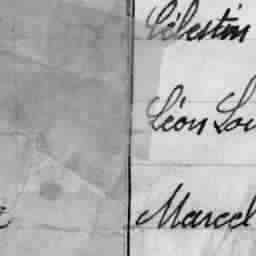 Célestin
Léon Lou
Marcel